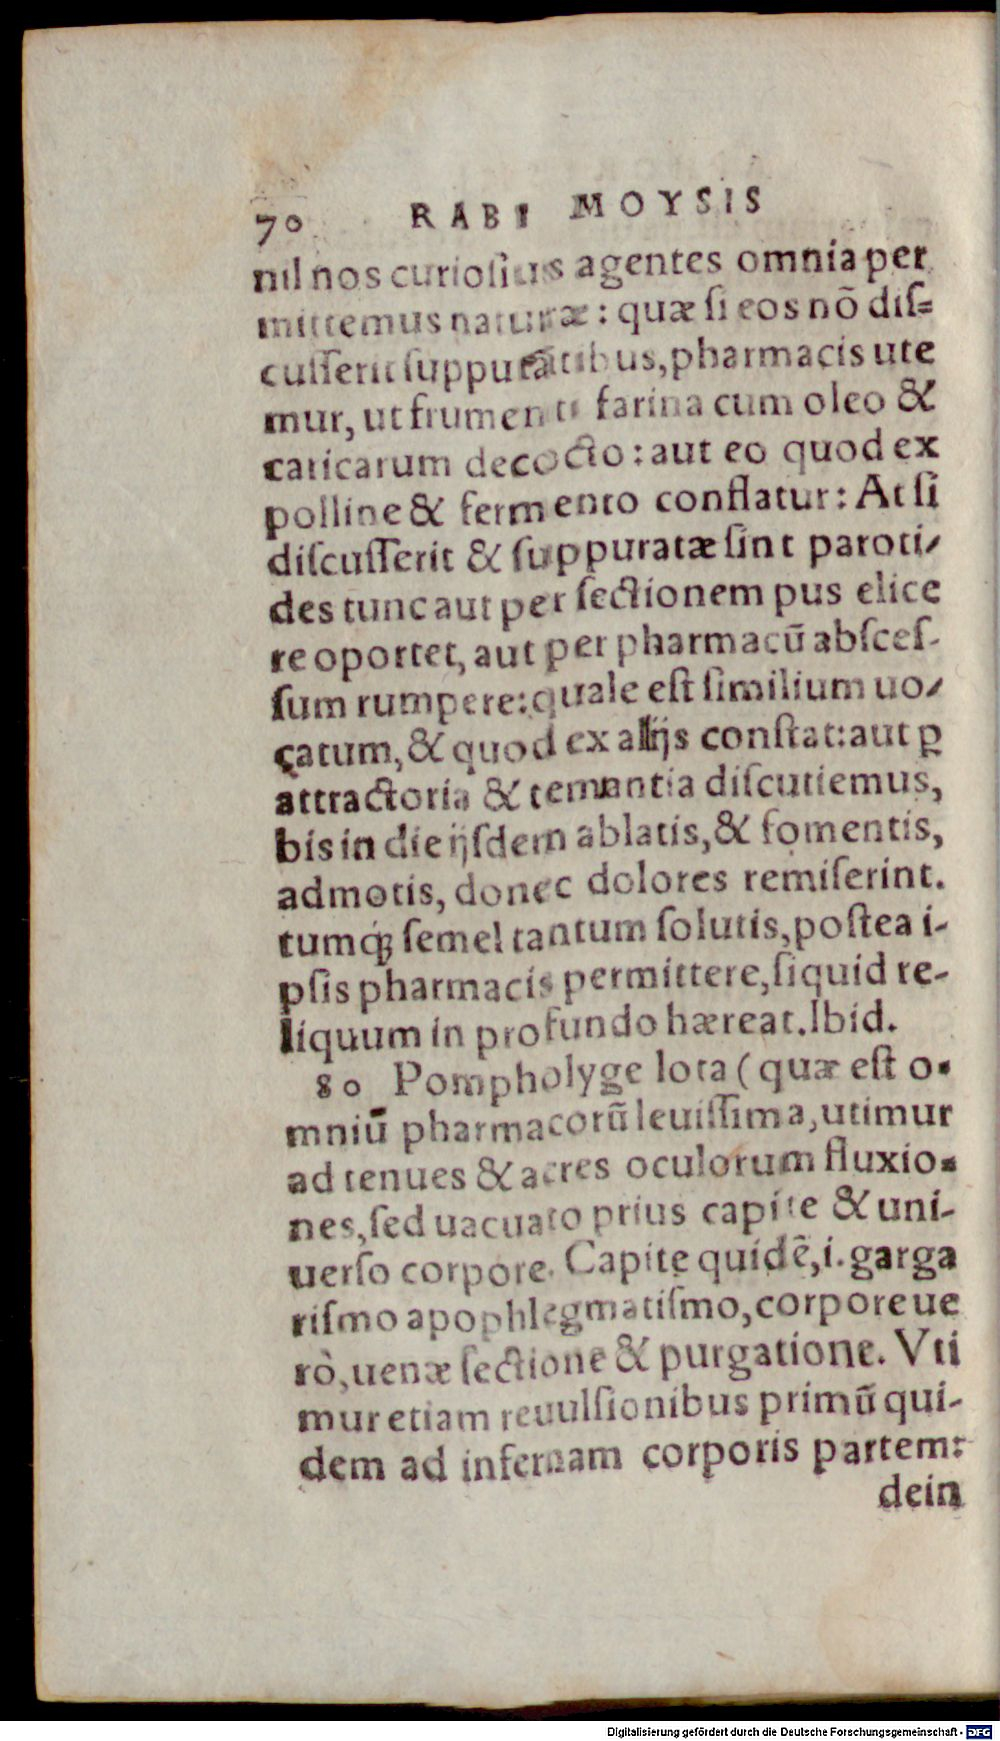 70 RABI MOYSIS
nil nos curioſius agentes omnia per
mittemus naturæ: quæ ſi eos nõ diſ=
cuſſerit ſuppurãtibus, pharmacis ute
mur, ut frumenti farina cum oleo &
caricarum decocto: aut eo quod ex
polline & fermento conflatur: At ſi
diſcuſſerit & ſuppuratæ ſint paroti-
des tunc aut per ſectionem pus elice
re oportet, aut per pharmacũ abſceſ-
ſum rumpere: quale eſt ſimilium uo-
catum, & quod ex alijs conſtat: aut ꝑ
attractoria & temantia diſcutiemus,
bis in die ijſdem ablatis, & fomentis,
admotis, donec dolores remiſerint.
tumq́ꝫ ſemel tantum ſolutis, poſtea i-
pſis pharmacis permittere, ſiquid re-
liquum in profundo hæreat. Ibid.
80 Pompholyge lota (quæ eſt o-
mniũ pharmacorũ leuiſſima, utimur
ad tenues & acres oculorum fluxio-
nes, ſed uacuato prius capite & uni-
uerſo corpore. Capite quidẽ, i. garga
riſmo apophlegmatiſmo, corpore ue
rò, uenæ ſectione & purgatione. Vti
mur etiam reuulſionibus primũ qui-
dem ad infernam corporis partem:
dein
Digitalisierung gefördert durch die Deutsche Forschungsgemeinschaft - DFG